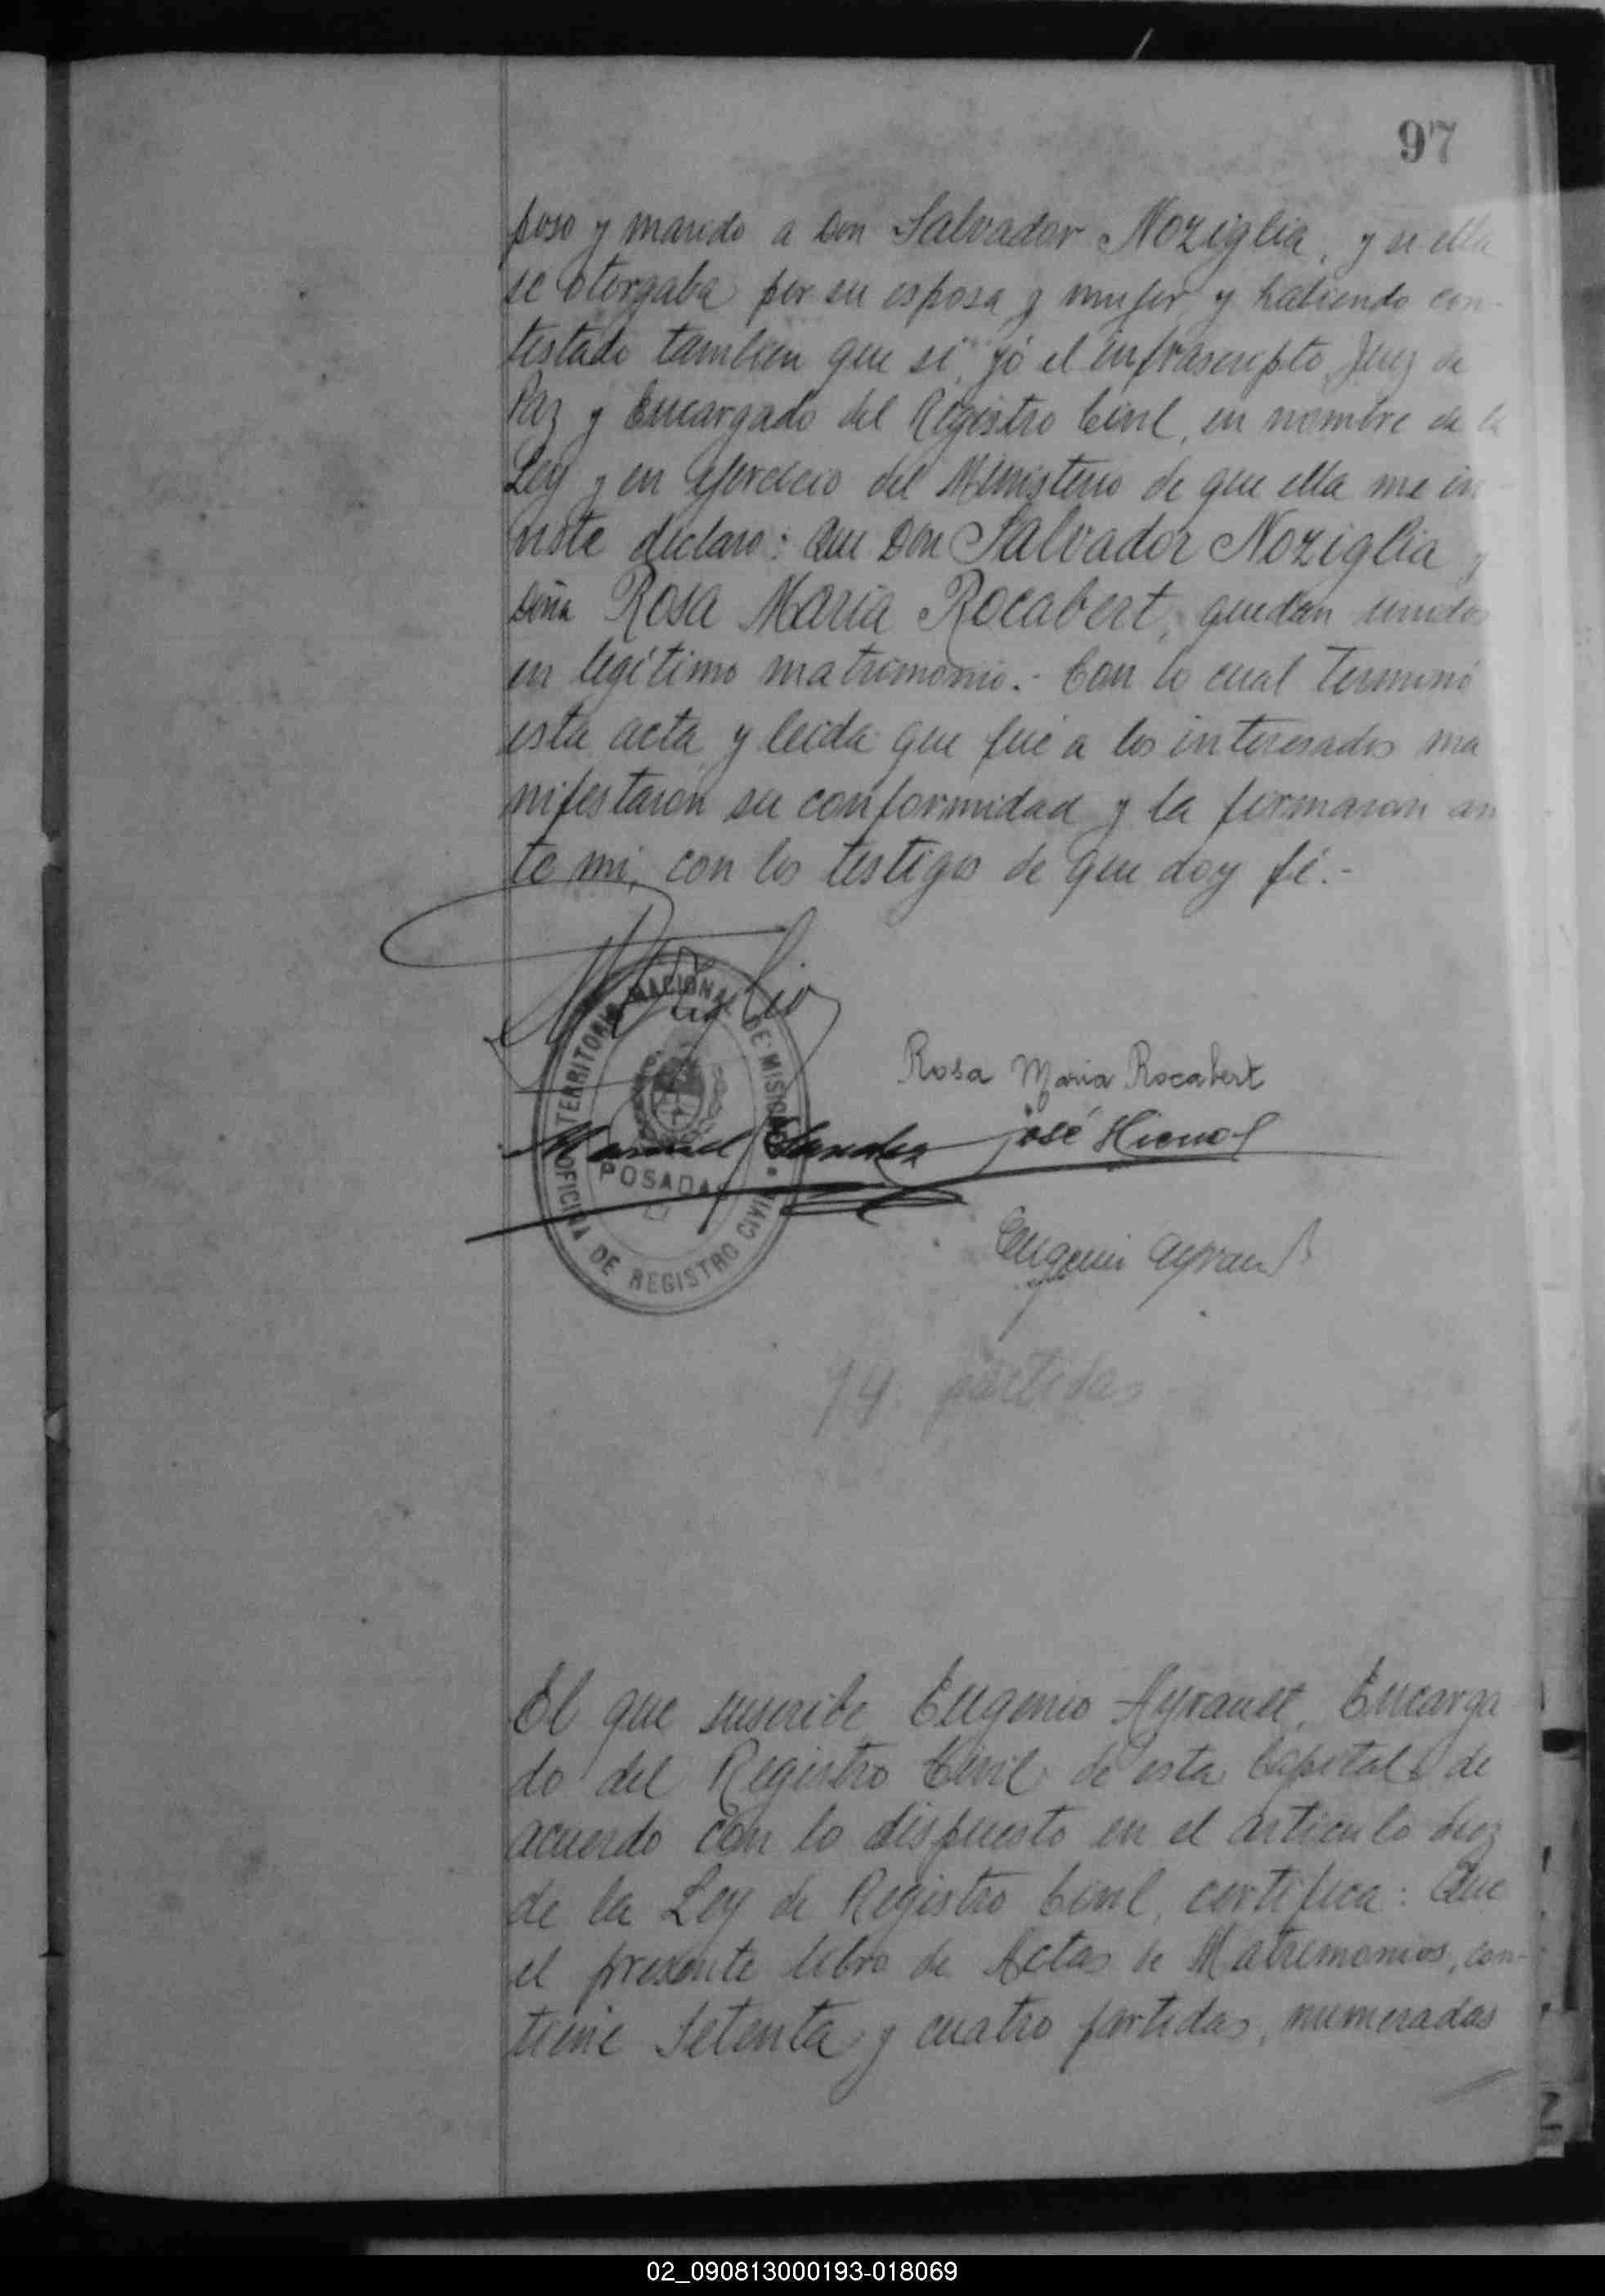 97
poso y marido a Don Salvador Noziglia, y si ella
se otorgaba por su esposa y mujer, y habiendo con-
testado tambien que sí, yó el infrascripto, Juez de
Paz y Encargado del Registro Civil, en nombre de la
Ley y en ejercicio del Ministerio de que ella me in-
viste declaro: Que Don Salvador Noziglia y
Doña Rosa Maria Rocabert, quedan unidos
en legítimo matrimonio.- Con lo cual terminó
esta acta, y leida que fué a los interesados ma
nifestaron su conformidad y la firmaron an
te mi, con los testigos de que doy fé.-
TERRITORIO NACIONAL DE MISIONES
Rosa Maria Rocabert
Manuel Sanchez José
POSADAS
OFICINA DE REGISTRO CIVIL
Eugenio Ayrault
74 partidas
El que suscribe Eugenio Ayrault, Encarga
do del Registro Civil de esta Capital, de
acuerdo con lo dispuesto en el artículo diez
de la Ley de Registro Civil, certifica: Que
el presente libro de Actas de Matrimonios, con-
tiene Setenta y cuatro partidas, numeradas
02_090813000193-018069